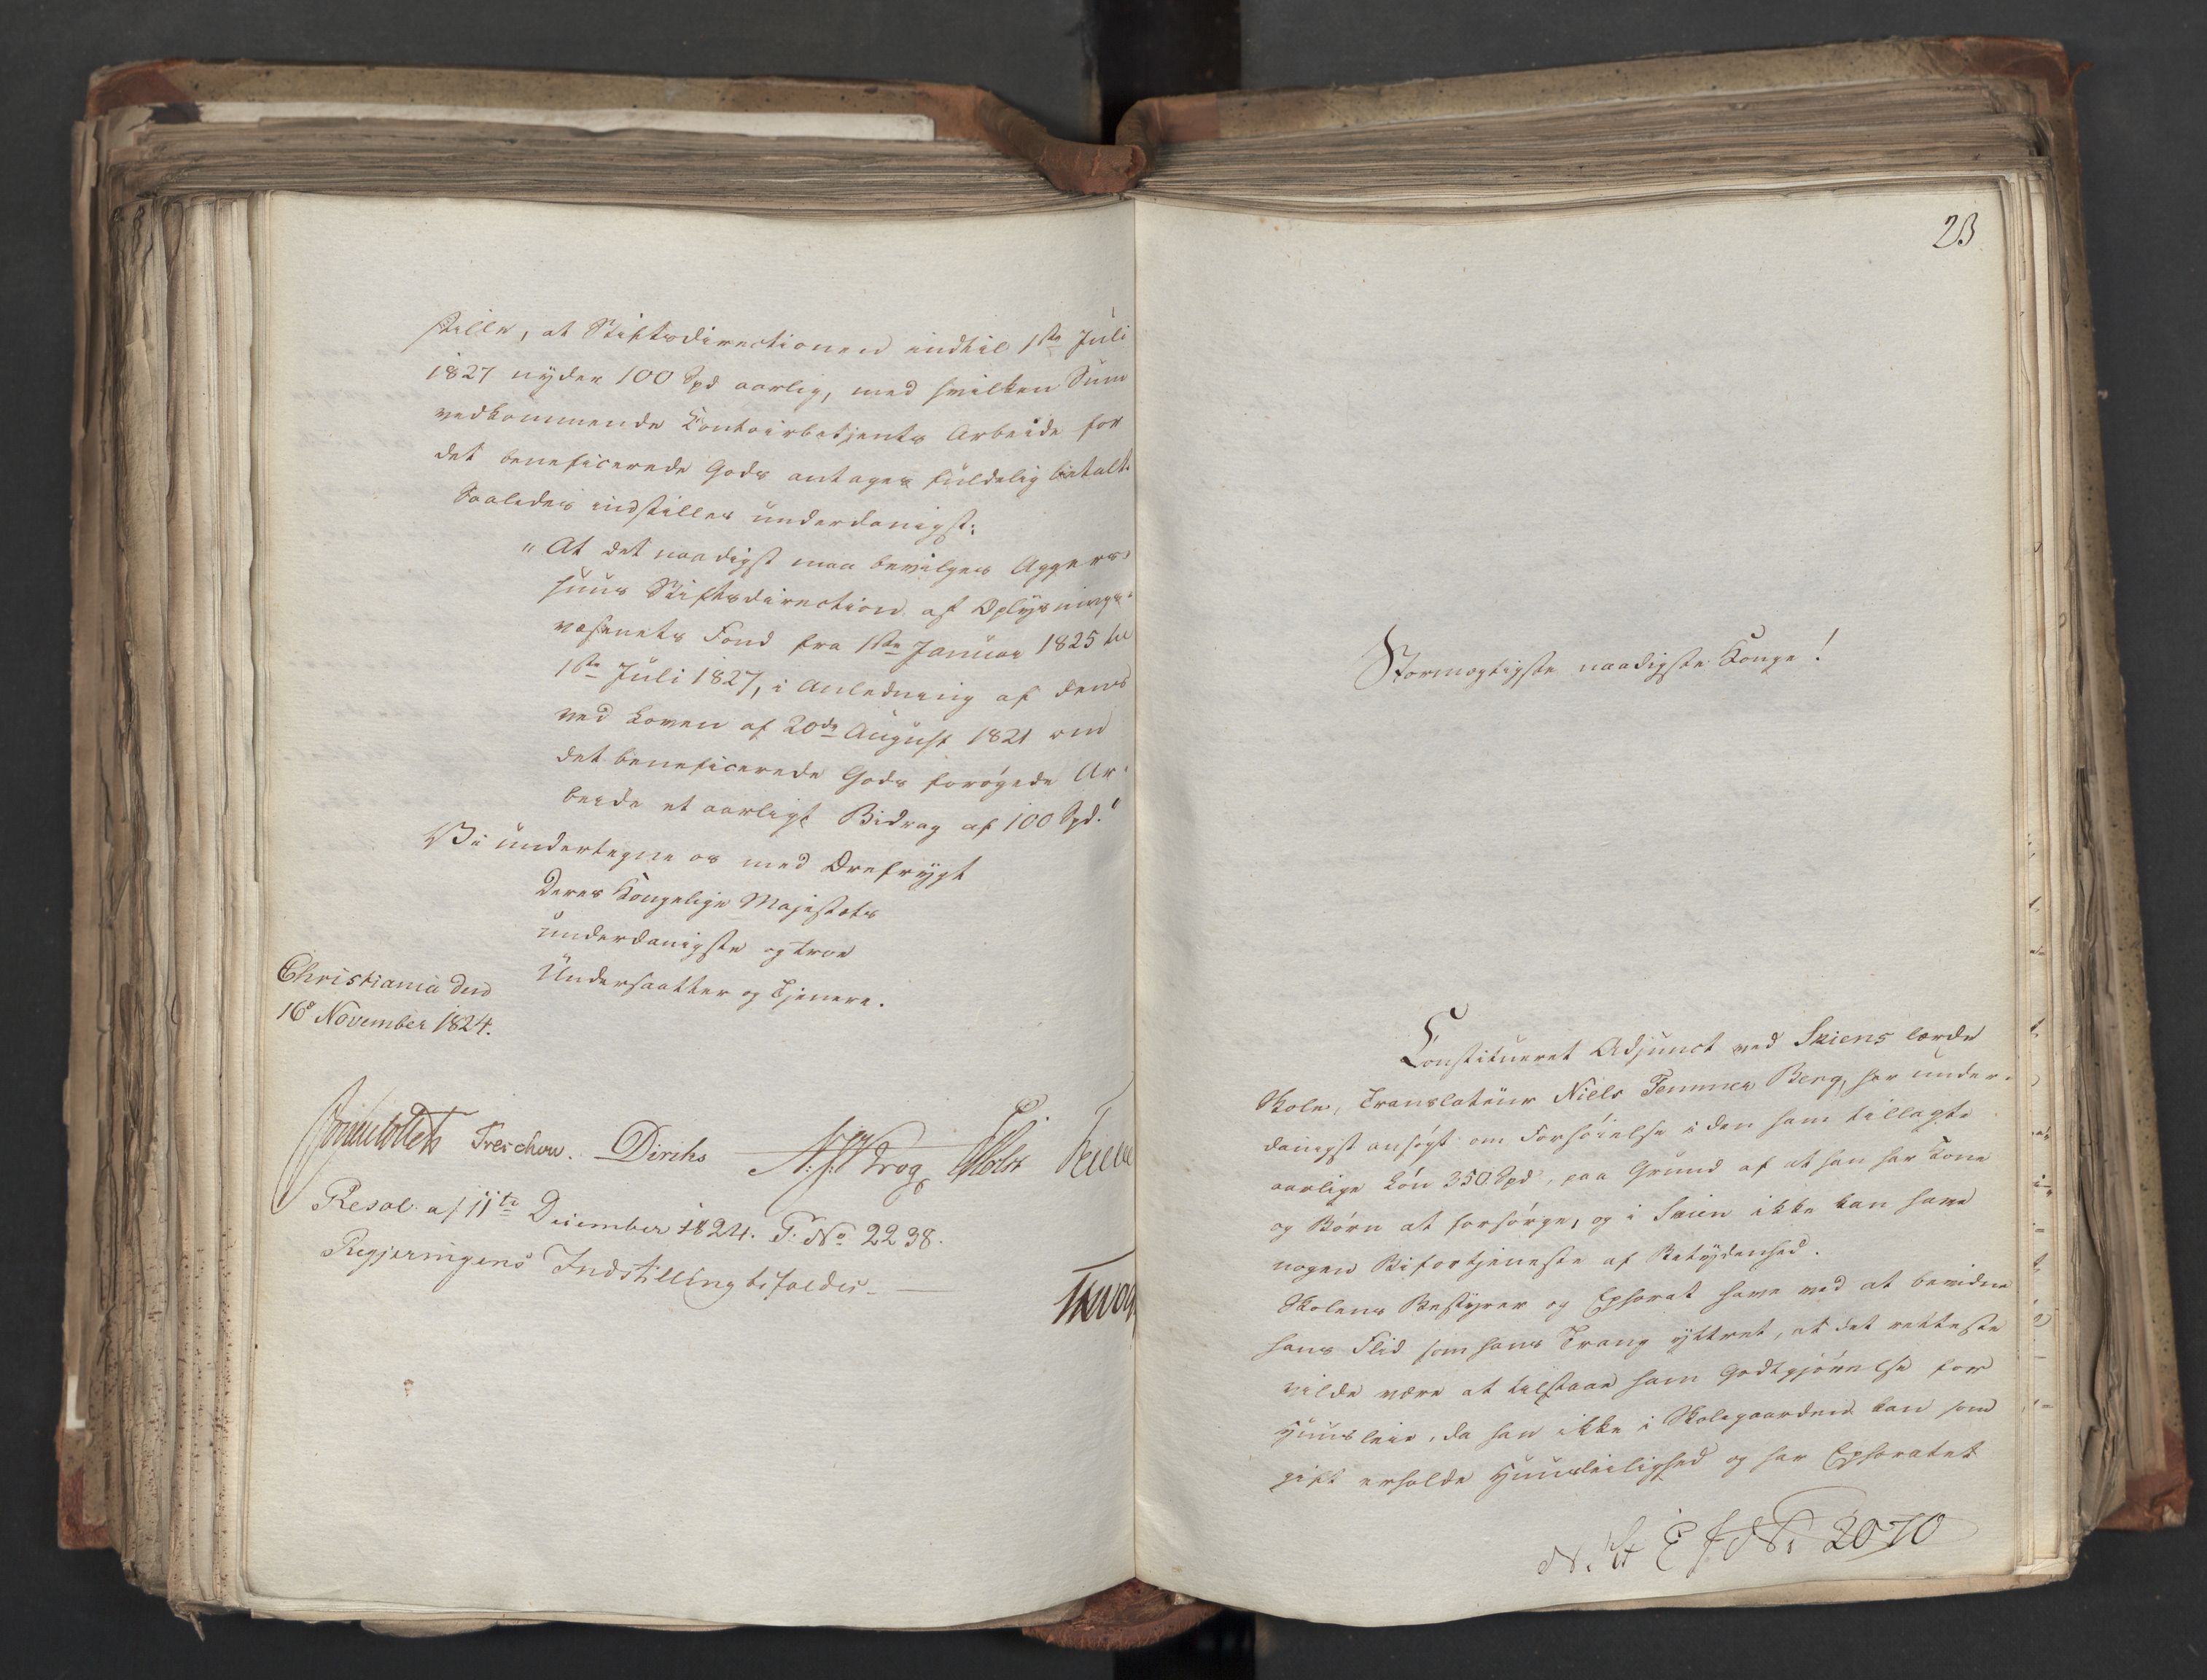 stille, at Stiftsdirectionen indtil 1ste Juli
1827 nyder 100 Spd aarlig, med hvilken Sum
vedkommende Contoirbetjents Arbeide for
det beneficerede Gods antages fuldelig betalt.
Saaledes indstilles underdanigst:
"At det naadigst maa bevilges Aggers-
huus Stiftsdirection af Oplysnings-
væsenets Fond fra 1ste Januar 1825 til
1ste Juli 1827, i Anledning af dens
ved Loven af 20de August 1821 om
det beneficerede Gods forøgede Ar-
beide et aarligt Bidrag af 100 Spd."
Vi undertegne os med Ærefrygt
Deres Kongelige Majestæts
underdanigste og troe
Undersaatter og Tjenere.
Christiania den
16 November 1824.
Treschow. Diriks Krog Holst
Resol. af 11te December 1824. P. No 2238.
Regjeringens Indstilling bifaldes.
23
Stormægtigste naadigste Konge!
Constitueret Adjunct ved Skiens lærde
Skole, Translateur Niels Temmer Berg, har under-
danigst ansøgt om Forhøielse i den ham tillagte
aarlige Løn 350 Spd, paa Grund af at han har Kone
og Børn at forsørge, og i Skien ikke kan have
nogen Bifortjeneste af Betydenhed.
Skolens Bestyrer og Ephorat have ved at bevidne
hans Flid som hans Trang yttret, at det retteste
vilde være at tilstaae ham Godtgjørelse for
Huusleie, da han ikke i Skolegaarden kan som
gift erholde Huusleilighed og har Ephoratet
2070